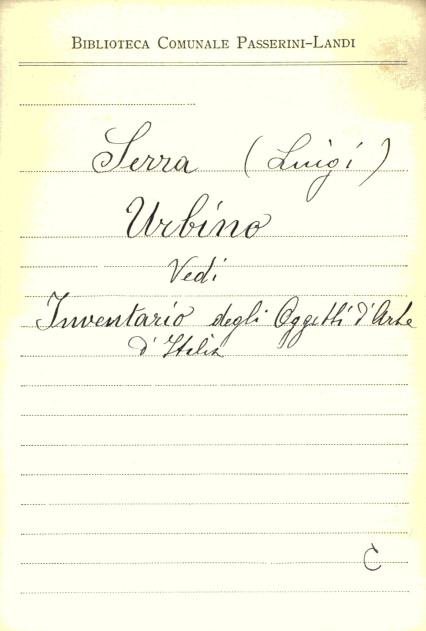 Biblioteca Comunale Passerini-Landi
Serra (Luigi)
Urbino
Vedi
Inventario degli Oggetti d'Arte
d'Italia
C